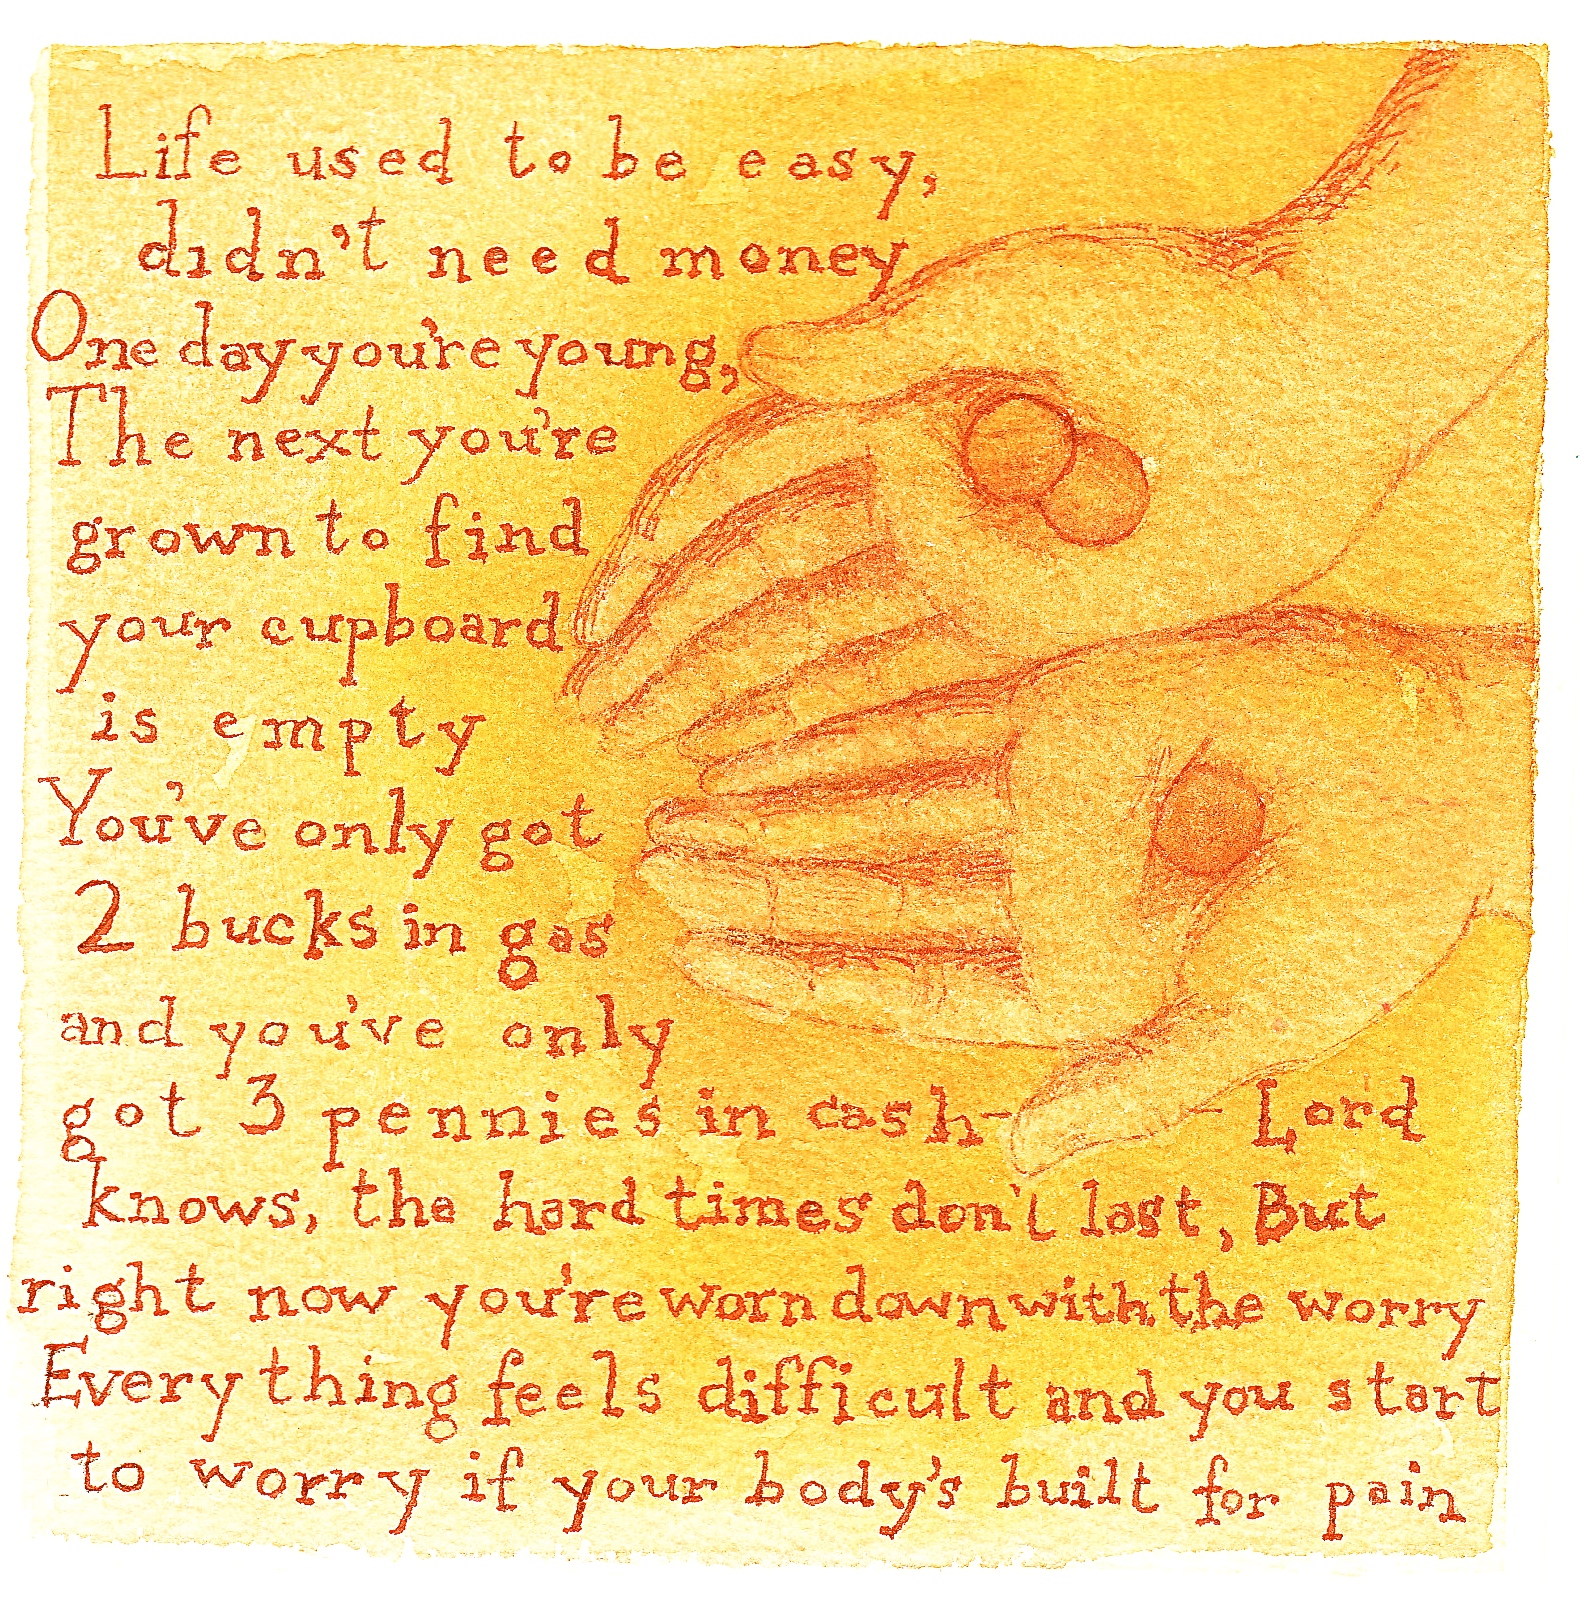 Life used to be easy,
didn't need money
One day you're young,
The next you're
grown to find
your cupboard
is empty
You've only got
2 bucks in gas
and you've only
got 3 pennies in cash- - Lord
knows, the hard times don't last, But
right now you're worn down with the worry
Everything feels difficult and you start
to worry if your body's built for pain